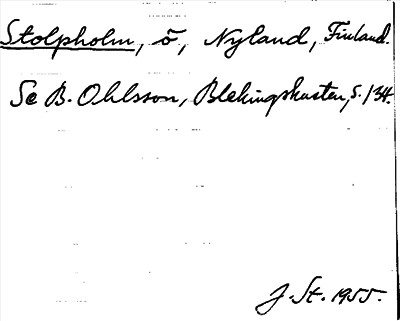 Stolpholm, ö, Nyland, Finland.
Se B. Ohlsson, Blekingskusten, s. 134.
J. St. 1955.